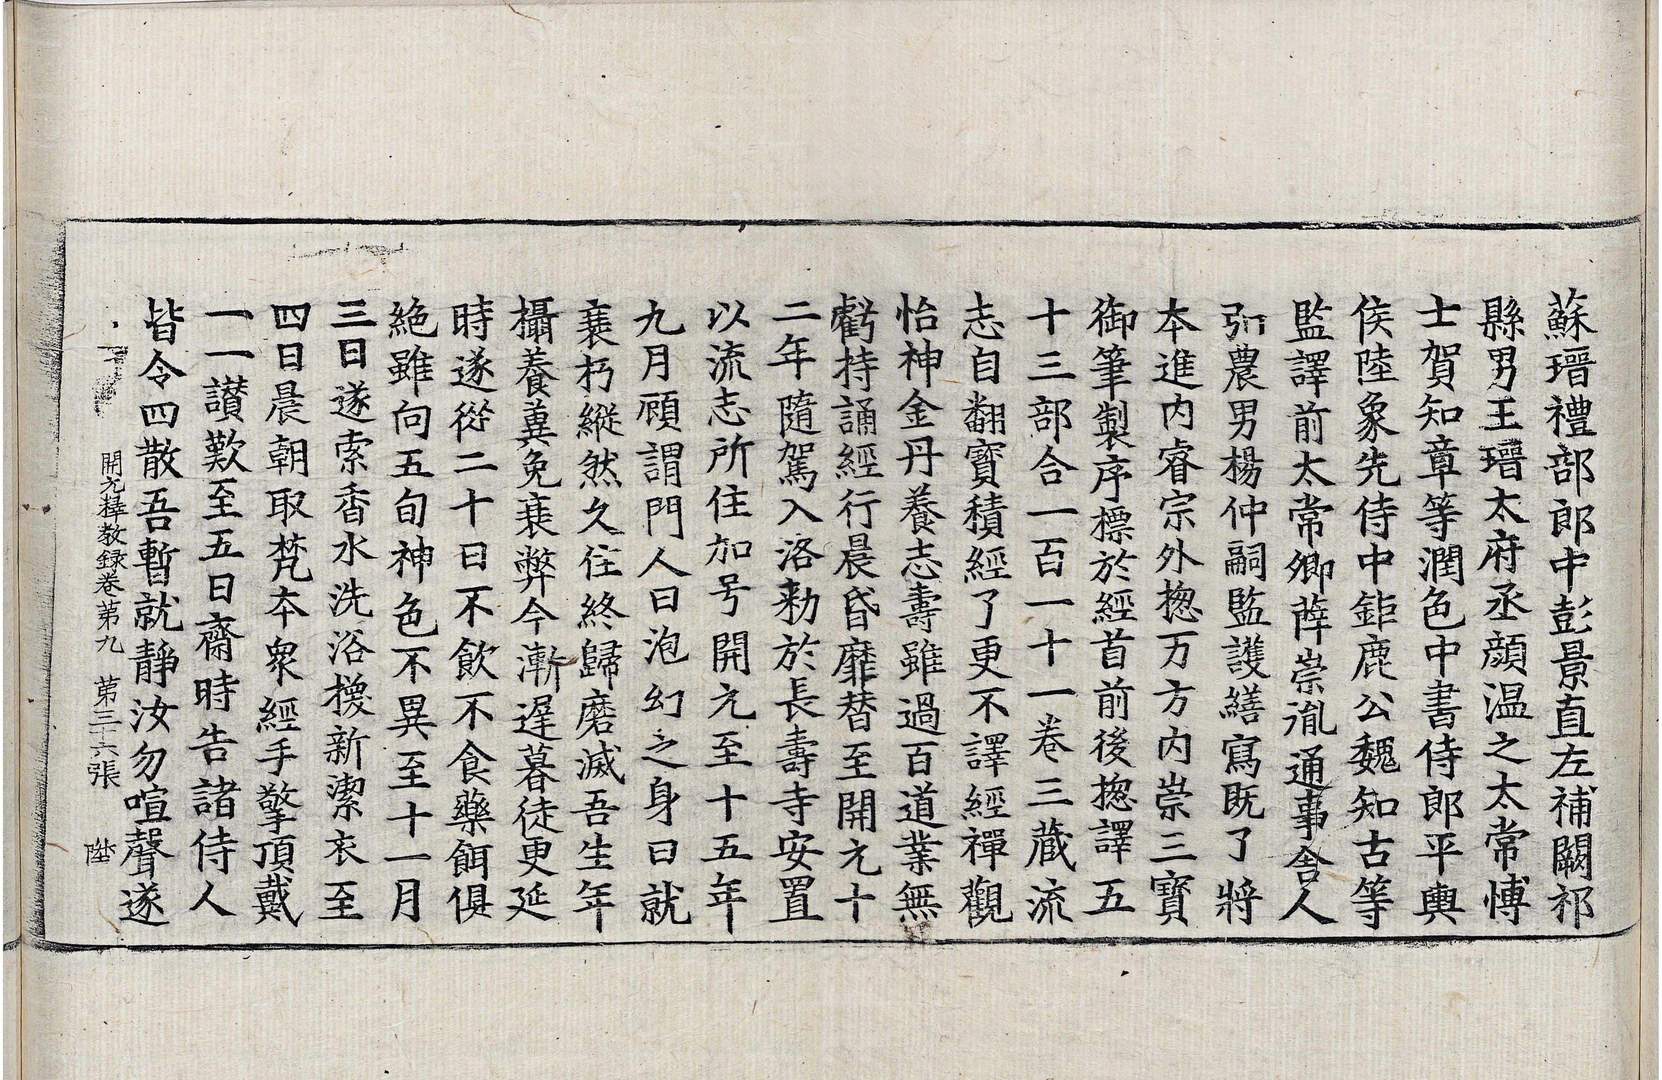 蘇瑨禮部郎中彭景直左補闕祁
縣男王瑨太府丞顔温之太常博
士賀知章等潤色中書侍郎平輿
侯陸象先侍中鉅鹿公魏知古等
監譯前太常卿薛崇胤通事舎人
弘農男楊仲嗣監護繕寫既了將
本進内睿宗外揔万方内崇三寶
御筆製序標於經首前後揔譯五
十三部合一百一十一卷三藏流
志自翻寳積經了更不譯經禪觀
怡神金丹養志壽雖過百道業無
虧持誦經行晨昏靡替至開元十
二年隨駕入洛勑於長壽寺安置
以流志所住加号開元至十五年
九月頋謂門人曰泡幻之身日就
衰朽縱然久住終歸磨滅吾生年
攝養兾免衰弊今漸遲暮徒更延
時遂從二十日不飲不食藥餌俱
絶雖向五旬神色不異至十一月
三日遂索香水洗浴換新潔衣至
四日晨朝取梵夲衆經手擎頂戴
一一讃歎至五日齋時告諸侍人
皆令四散吾暫就靜汝勿喧聲遂
開元釋教録卷第九　第三十六張　陞